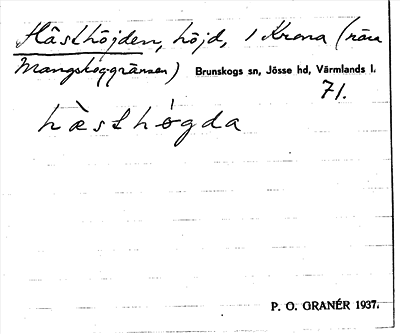 Hästhöjden, höjd, 1 Krona (nära
Mangskoggränsen) Brunskogs sn, Jösse hd, Värmlands l.
71.
hæ̀sthǿgda
P. O. GRANÉR 1937.